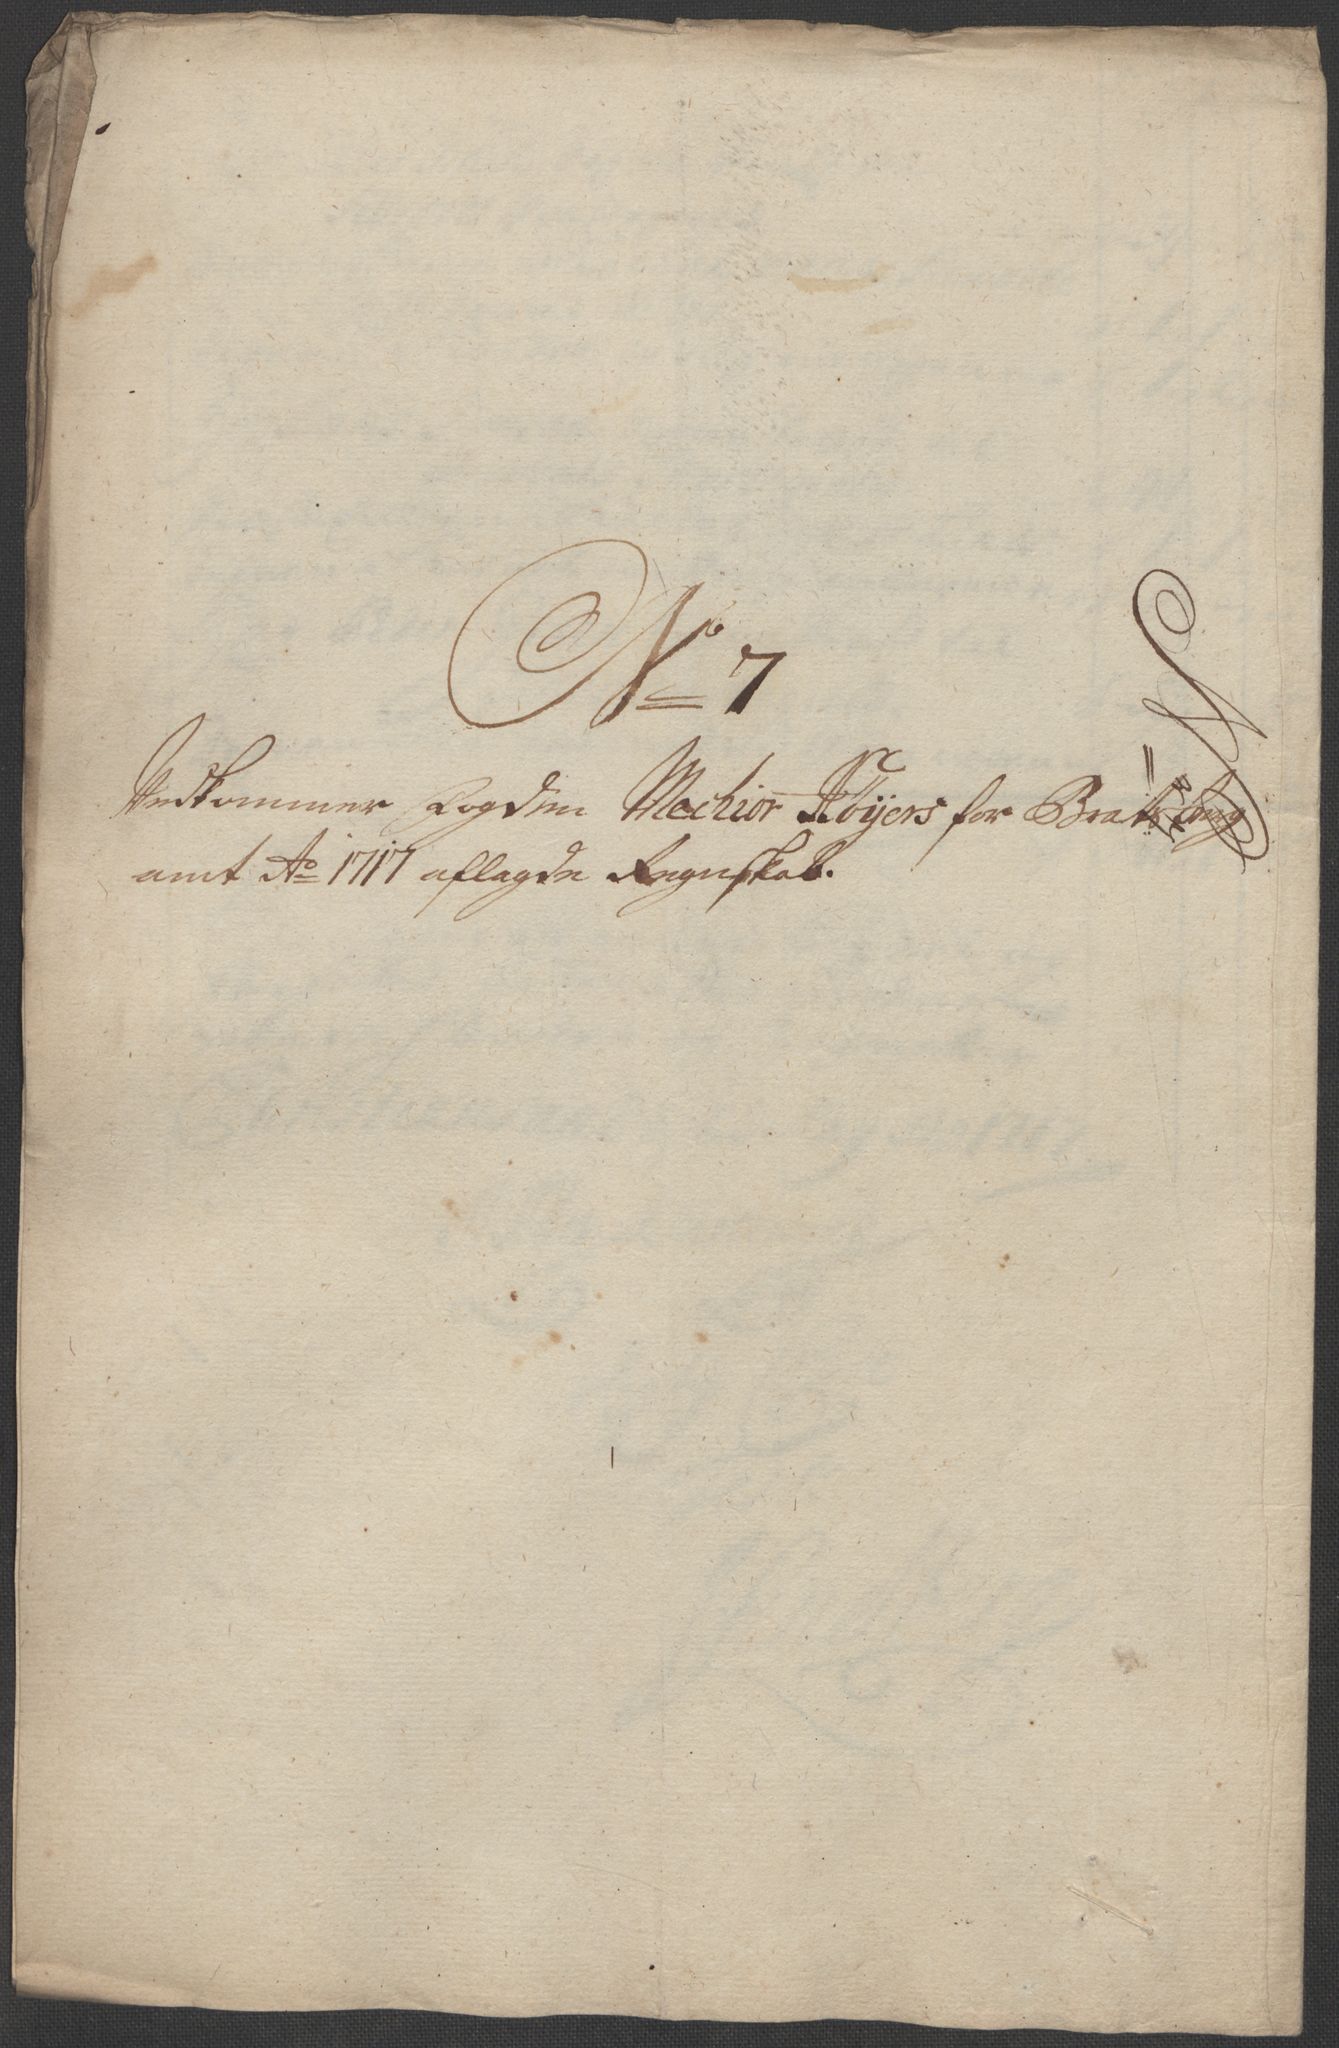 No 7
Vedkommer Fogden Mechior Röyers for Bratsberg
amt Ao 1717 aflagde Regnskab.